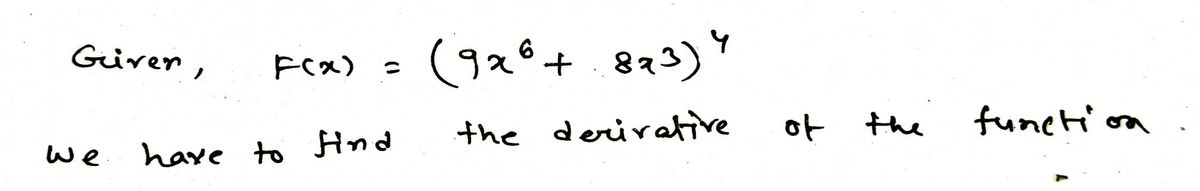 Given, F(x) = (9x⁶ + 8x3)⁴
we have to find the derivative of the function.